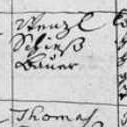 Wenzl
Schieß
Bauer
Thomas